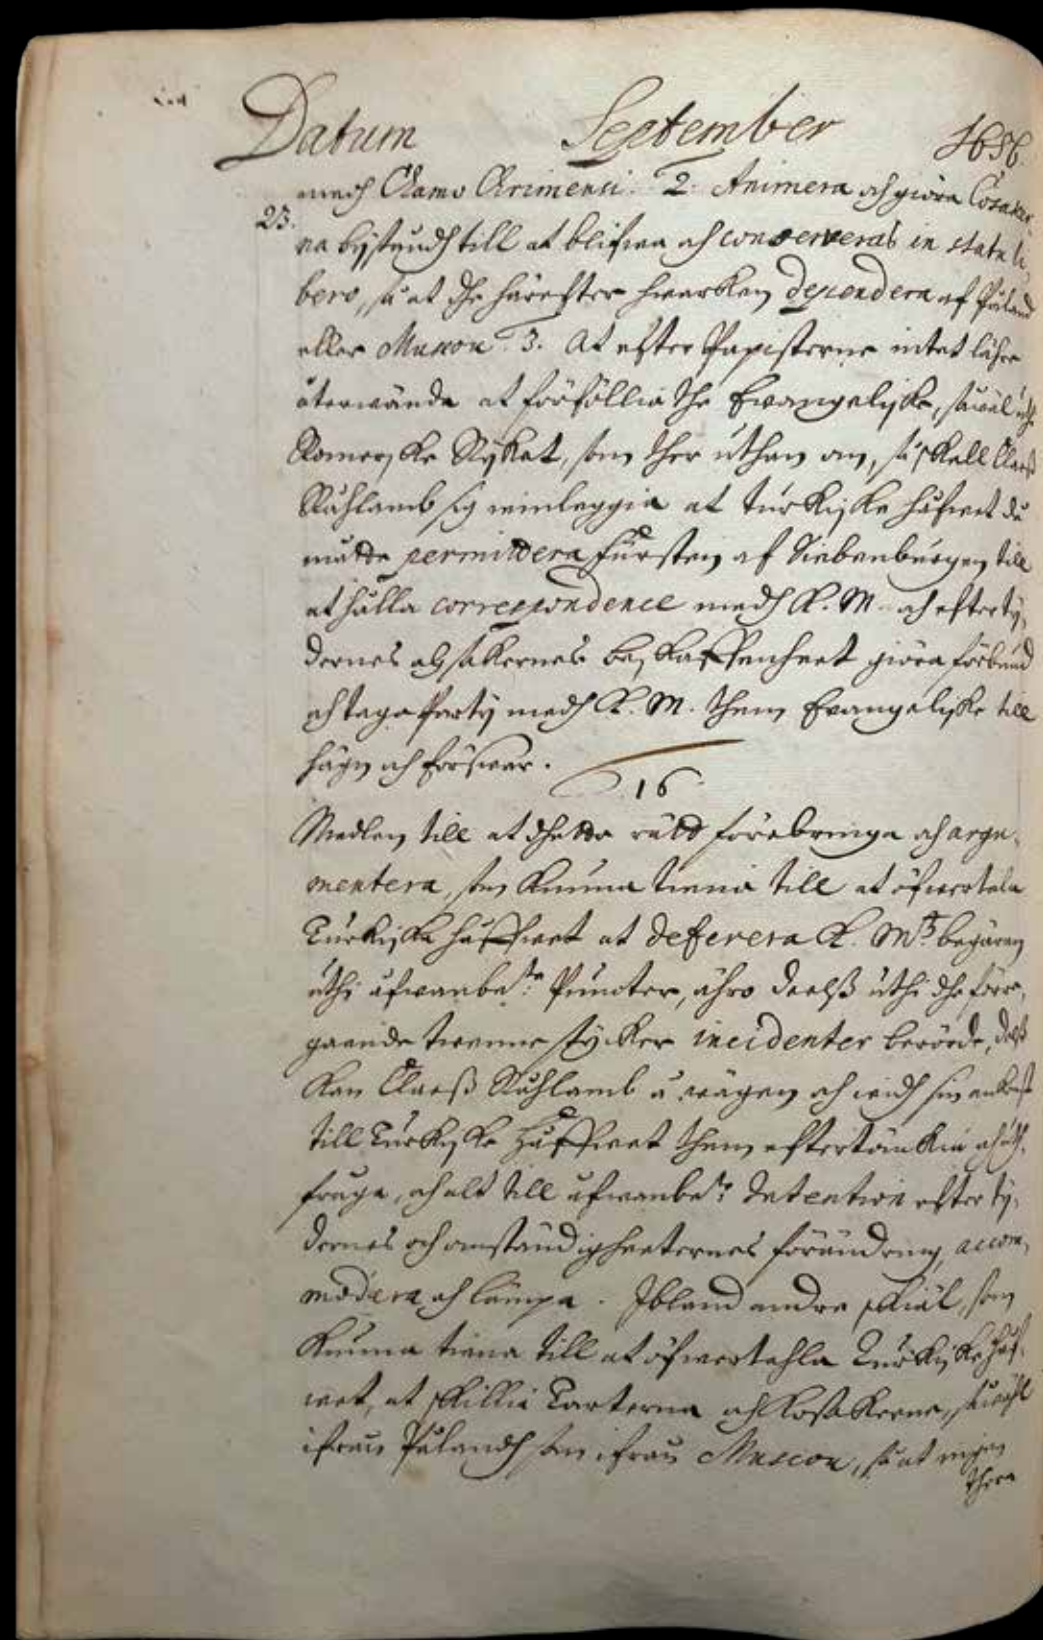 Datum September 1656.
medh Chamo Crimensi. 2. Animera och giöra Cosaker,
23.
na bijstandh till at blifwa och conserveras in statu li,
bero, så at dhe härefter hwarken dependera af Påland
eller Muscou. 3. At efter Papisterne intet lähre
återwända at förföllia the Evangelijske, såwäl uthi
Romerske Rijket, som ther uthan om, så skall Claeß
Råhlamb sig winleggia at Turkijske håfwet då
måtte permittera Fursten af Siebenbürgen till
at hålla correspondence medh K. M. och efter tij,
dernes och sakernes beskaffenheet giöra förbund
och taga Partij medh K. M. them Evangelijske till
hägn och förswar.
16
Medlen till at dhetta rätt förebringa och argu,
mentera, som kunna tiena till at öfwertala
Turkijska håffwet at deferera K. M:tz begären
uthi ofwanbe:te Puncter, ähro deelß uthi dhe före,
gaende twenne stycker incidenter berörde, deelß
kan Claeß Råhlamb å wägen och widh sin ankomst
till Turkijske Håffwet them eftertänkia och uth,
fråga, och alt till ofwanbe:te Intention efter tij,
dernes och omständigheeternes förändring, accom,
modera och lämpa. Ibland andre skiäl, som
kunna tiena till at öfwertahla Turkijske Håf,
wet, at skillia Tarterna och Kosakerne, såwähl
ifrån Pålandh som ifrån Muscou, så at ingen
thera